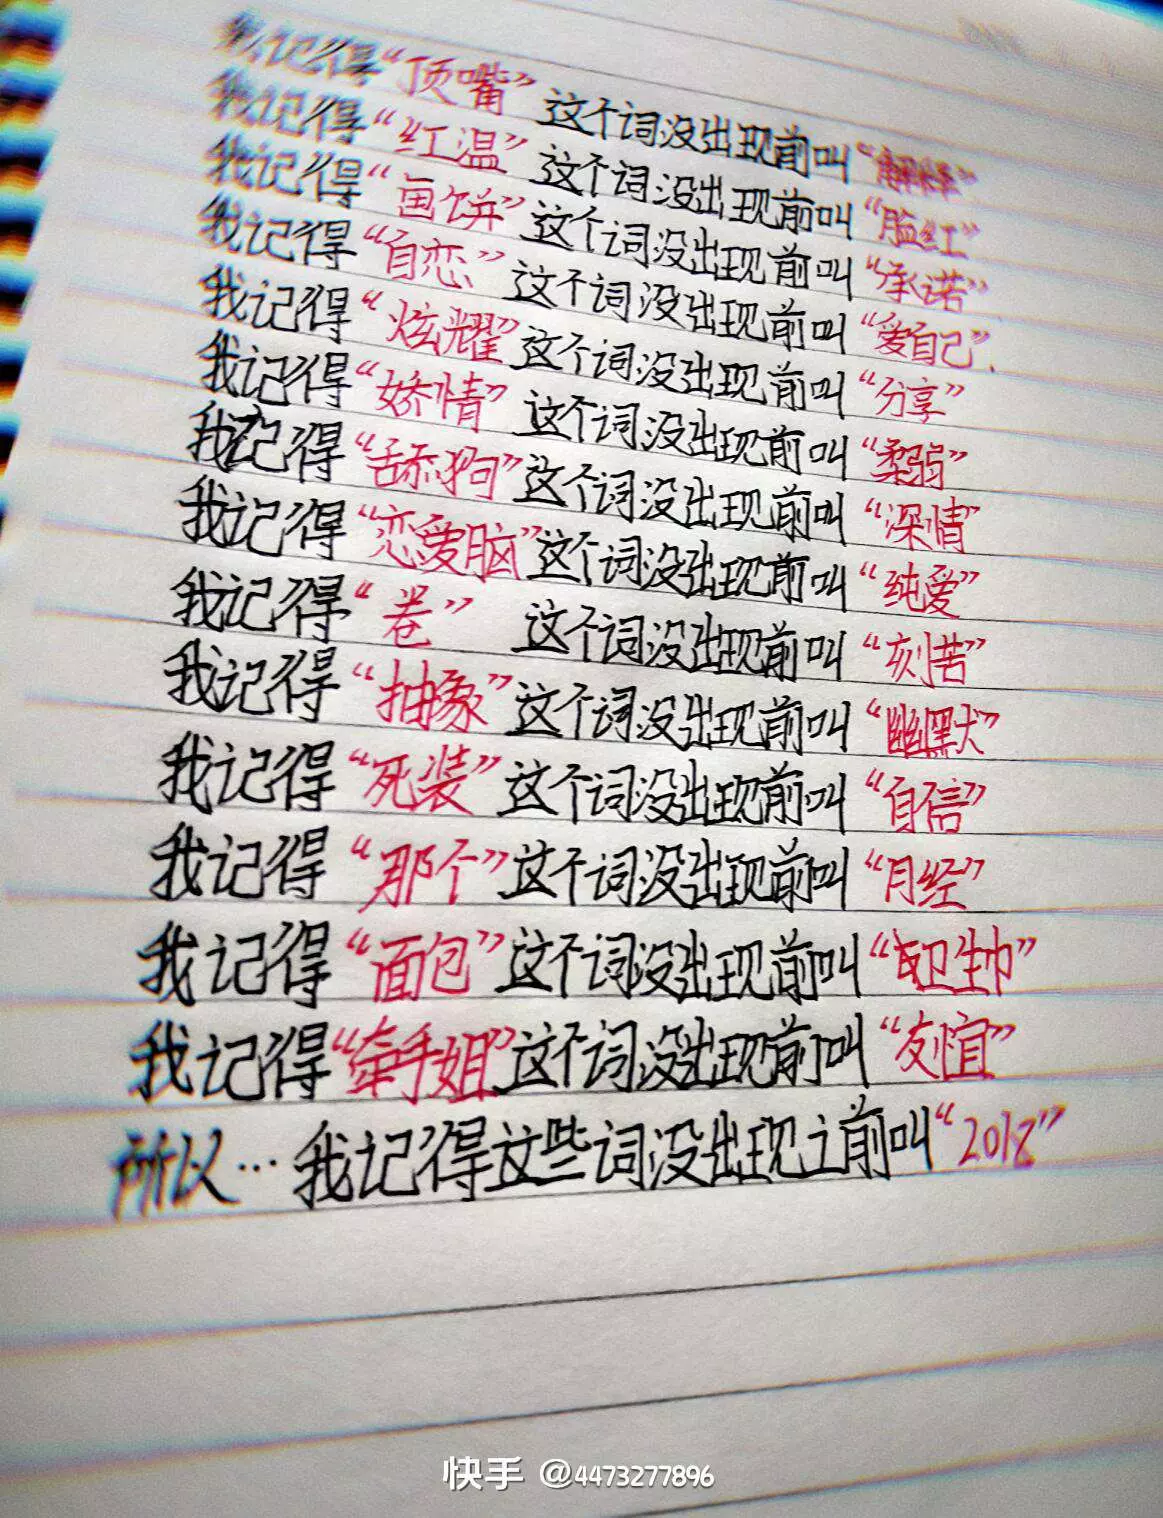 我记得“顶嘴”这个词没出现前叫“解释”
我记得“红温”这个词没出现前叫“脸红”
我记得“画饼”这个词没出现前叫“承诺”
我记得“自恋”这个词没出现前叫“爱自己”.
我记得“炫耀”这个词没出现前叫“分享”
我记得“娇情”这个词没出现前叫“柔弱”
我记得“舔狗”这个词没出现前叫“深情”
我记得“恋爱脑”这个词没出现前叫“纯爱”
我记得“卷”这个词没出现前叫“刻苦”
我记得“抽象”这个词没出现前叫“幽默”
我记得“死装”这个词没出现前叫“自信”
我记得“那个”这个词没出现前叫“月经”
我记得“面包”这个词没出现前叫“卫生巾”
我记得“牵手姐”这个词没出现前叫“友谊”
所以…我记得这些词没出现之前叫“2018”
快手 @4473277896